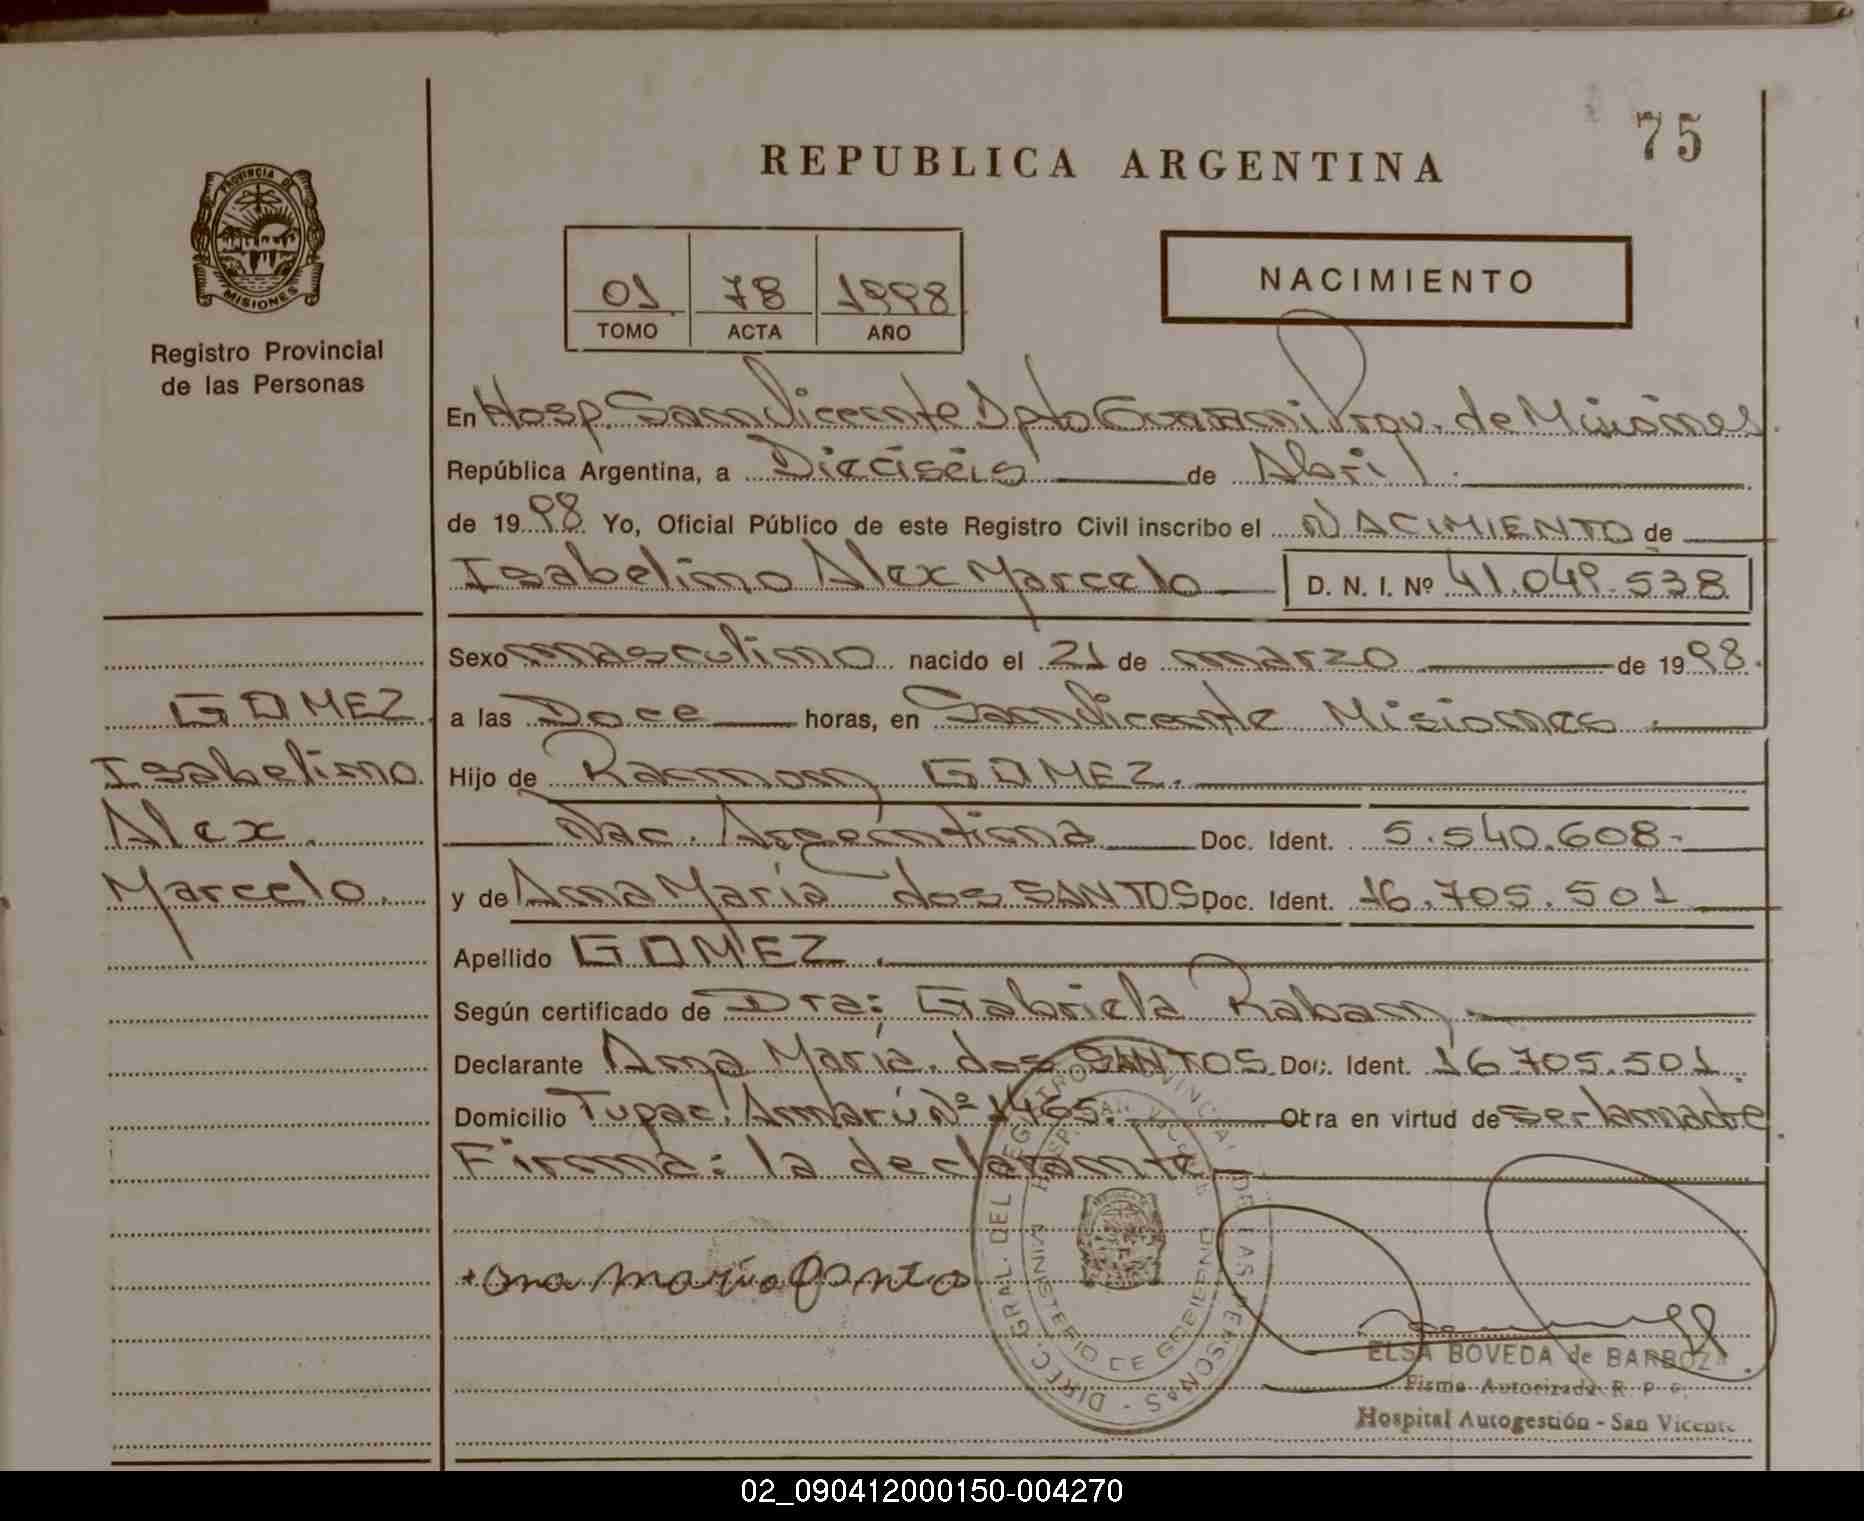 75
REPUBLICA ARGENTINA
PROVINCIA DE
MISIONES
Registro Provincial
de las Personas
01 78 1998
TOMO ACTA AÑO
NACIMIENTO
En Hosp. San Vicente Dpto Guaraní Prov. de Misiones
República Argentina, a Dieciséis de Abril
de 1998 Yo, Oficial Público de este Registro Civil inscribo el NACIMIENTO de
Isabelino Alex Marcelo D. N. I. Nº 41.049.538
Sexo masculino nacido el 21 de marzo de 1998.
a las Doce horas, en San Vicente Misiones.
Hijo de Ramon GOMEZ.
Nac. Argentina Doc. Ident. 5.540.608-
y de Ana María dos SANTOS Doc. Ident. 16.705.501
Apellido GOMEZ.
Según certificado de Dra: Gabriela Raban
Declarante Ana María dos SANTOS Doc. Ident. 16.705.501.
Domicilio Tupac Amarú Nº 1465. Obra en virtud de ser la madre
Firma: la declarante
GOMEZ
Isabelino
Alex.
Marcelo.
Ana maria santos
DIREC. GRAL. DEL REGISTRO PROVINCIAL DE LAS PERSONAS -
MINISTERIO DE GOBIERNO
HOSP. SAN VICENTE
ELSA BOVEDA de BARBOZA
Firma Autorizada R. P. P.
Hospital Autogestión - San Vicente
02_090412000150-004270